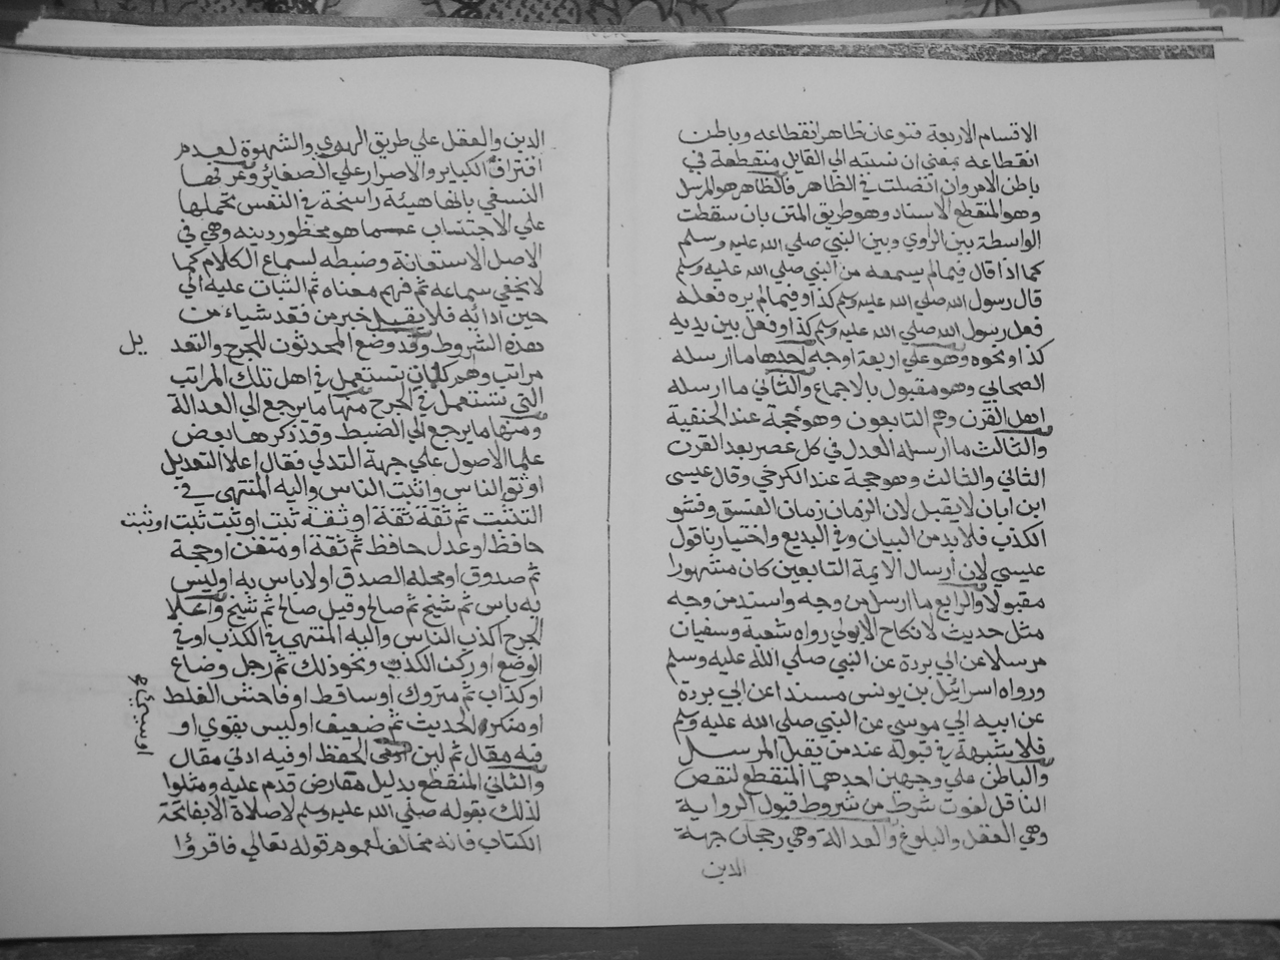 الاقسام الاربعة فنوعان ظاهر انقطاعه وباطن
انقطاعه بمعني ان نسبته الي القايل منقطعة في
باطن الامر وان اتصلت في الظاهر فالظاهر هو المرسل
وهو المنقطع الاسناد وهو طريق المتن بان سقطت
الواسطة بين الراوي وبين النبي صلي الله عليه وسلم
كما اذا قال فيما لم يسمعه من النبي صلي الله عليه وسلم
قال رسول الله صلي الله عليه وسلم كذا او فيما لم يره فعله
فعل رسول الله صلي الله عليه وسلم كذا او فعل بين يديه
كذا او نحوه وهو علي اربعة اوجه احدها ما ارسله
الصحابي وهو مقبول بالاجماع والثاني ما ارسله
اهل القرن وهم التابعون وهو حجة عند الحنفية
والثالث ما ارسله العدل في كل عصر بعد القرن
الثاني والثالث وهو حجة عند الكرخي وقال عيسي
ابن ابان لا يقبل لان الزمان زمان الفسق وفشو
الكذب فلا بد من البيان وفي البديع واختيارنا قول
عيسي لان ارسال الايمة التابعين كان مشهورا
مقبولا والرابع ما ارسل من وجه واسند من وجه
مثل حديث لا نكاح الا بولي رواه شعبة وسفيان
مرسلا عن ابي بردة عن النبي صلي الله عليه وسلم
ورواه اسرائيل بن يونس مسندا عن ابي بردة
عن ابيه ابي موسي عن النبي صلي الله عليه وسلم
فلا شبهة في قبوله عند من يقبل المرسل
والباطن علي وجهين احدهما المنقطع لنقص
الناقل لفوت شرط من شروط قبول الرواية
وهي العقل والبلوغ والعدالة وهي رجحان جهة
الدين
الدين والعقل علي طريق الهوي والشهوة لعدم
اقتراف الكباير والاصرار علي الصغاير وعرفها
النسفي بانها هيئة راسخة في النفس تحملها
علي الاجتناب عما هو محظور دينه وهي في
الاصل الاستقامة وضبطه لسماع الكلام كما
لا يخفي سماعه ثم فهم معناه ثم الثبات عليه الي
حين ادائه فلا يقبل خبر من فقد شياء من
هذه الشروط وقد وضع المحدثون للجرح والتعد
يل
مراتب وهم كلمات تستعمل في اهل تلك المراتب
التي تستعمل في الجرح منها ما يرجع الي العدالة
ومنها ما يرجع الي الضبط وقد ذكرها بعض
علما الاصول علي جهة التدلي فقال اعلا التعديل
اوثق الناس واثبت الناس واليه المنتهي في
التثبت ثم ثقة ثقة او ثقة ثبت او ثبت ثبت اوثبت
حافظ او عدل حافظ ثم ثقة او متقن او حجة
ثم صدوق او محله الصدق او لا باس به او ليس
به باس ثم شيخ ثم صالح وقيل صالح ثم شيخ واعلا
الجرح اكذب الناس واليه المنتهي في الكذب او في
الوضع او ركن الكذب ونحو ذلك ثم رجل وضاع
او كذاب ثم متروك او ساقط او فاحش الغلط
او منكر الحديث ثم ضعيف او ليس بقوي او
فيه مقال ثم لين الحفظ او فيه ادني مقال
والثاني المنقطع بدليل معارض قدم عليه ومثلوا
لذلك بقوله صلي الله عليه وسلم لا صلاة الا بفاتحة
الكتاب فانه مخالف لعموم قوله تعالي فاقرؤا